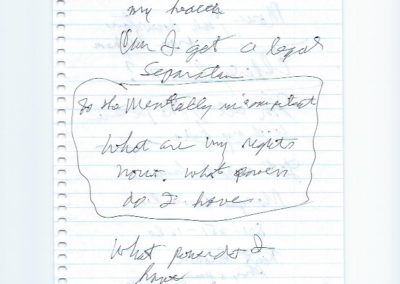 my health
Can I get a legal
Separation.
Is she Mentally incompetent
What are my rights
now. What powers
do I have.
What powers do I
have